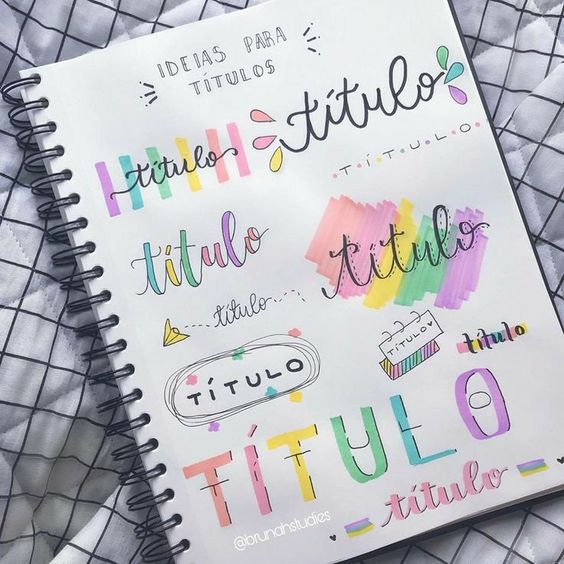 IDEIAS PARA
TÍTULOS
título
título
T.Í.T.U.L.O.
título
título
título
TÍTULO
título
TÍTULO
TÍTULO
título
@brunahstudies